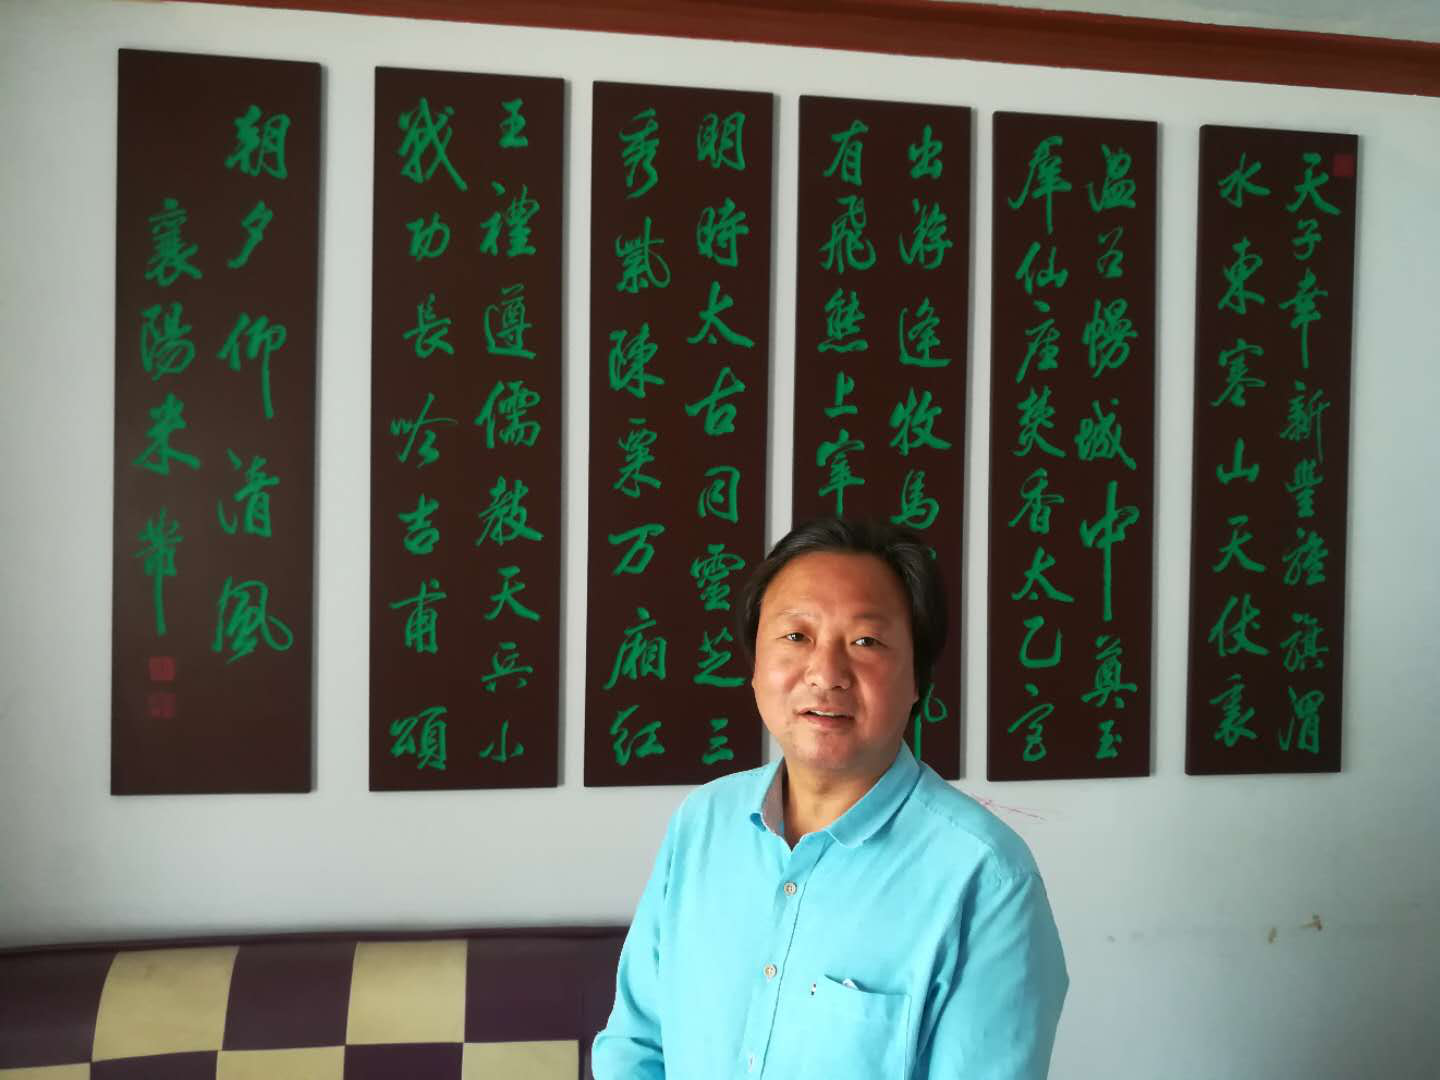 天子幸新豐旌旗渭
水東寒山天仗裏
温谷幔城中奠玉
羣仙座焚香太乙宫
出游逢牧馬
有飛熊上宰
明時太古同靈芝三
秀紫陳粟万廂红
王禮遵儒教天兵小
戰功長吟吉甫頌
朝夕仰清風
襄陽米芾